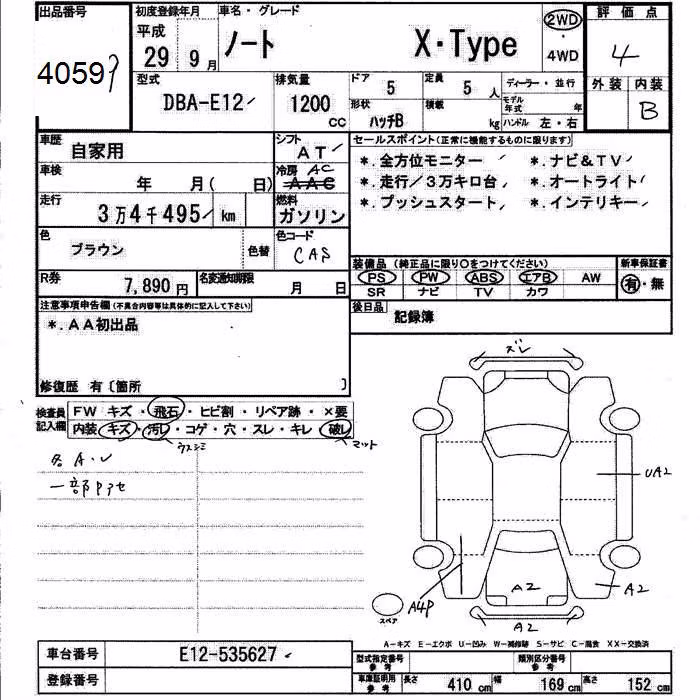 出品番号 初度登録年月 車名・グレード 評価点
平成 29 9月 ノート X・Type 2WD ・ 4WD 4
4059
型式 排気量 ドア 5 定員 5 人 ディーラー・並行 外装 内装
DBA-E12 1200 CC 形状 ハッチB 積載 kg モデル年式 年 ハンドル 左・右 B
車歴 シフト セールスポイント(正常に機能するものに限ります)
自家用 AT
車検 年 月( 日) 冷房 AC AAC
*.全方位モニター *.ナビ&TV
*.走行/3万キロ台 *.オートライト
*.プッシュスタート *.インテリキー
走行 3万4千495 km 燃料 ガソリン
色 ブラウン 色替 色コード CAS
装備品(純正品に限り○をつけてください) 新車保証書
PS PW ABS エアB AW 有・無
SR ナビ TV カワ
R券 7,890円 名変通知期限 月 日
後日品 記録簿
注意事項申告欄(不具合内容等は具体的に記入して下さい)
*.AA初出品
修復歴 有〔箇所 〕
検査員記入欄 FW キズ・飛石・ヒビ割・リペア跡・×要
内装 キズ・汚レ・コゲ・穴・スレ・キレ・破レ
ウスシミ マット
各A・U
ズレ
UA2
A4P
A2
A2
A2
スペア
A−キズ E−エクボ U−凹み W−補修跡 S−サビ C−腐食 XX−交換済
車台番号 E12-535627
登録番号
型式指定番号 参考 類別区分番号 参考
車庫証明用 参考 長さ 410 cm 幅 169 cm 高さ 152 cm